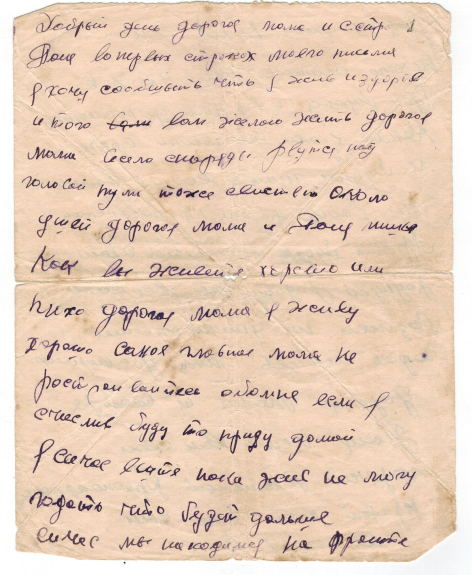 Добрый день дорогая мама и сестра
Тоня вопервых строках моего письма
я хочу сообщить что я жив и здоров
и того вам желаю жить дорогая
мама снаряды рвутся над
головой пули тоже свистят около
ушей дорогая мама и Тоня
Как вы живете хорошо или
плохо дорогая мама я живу
хорошо самое главное мама не
растраивайтесь обомне если я
счеслив буду то приду домой
я сичас пока жив не могу
гадать что будет дальше
сичес мы находимся на фронте